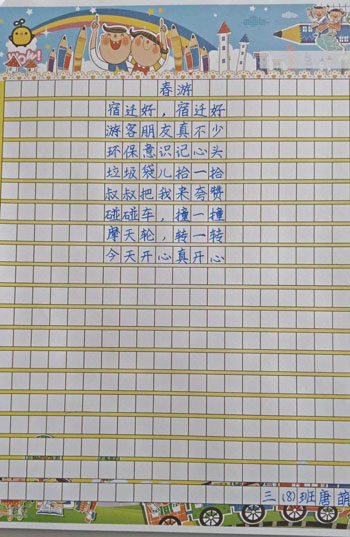 春游
宿迁好，宿迁好
游客朋友真不少
环保意识记心头
垃圾袋儿拾一拾
叔叔把我来夸赞
碰碰车，撞一撞
摩天轮，转一转
今天开心真开心
三(8)班唐萌